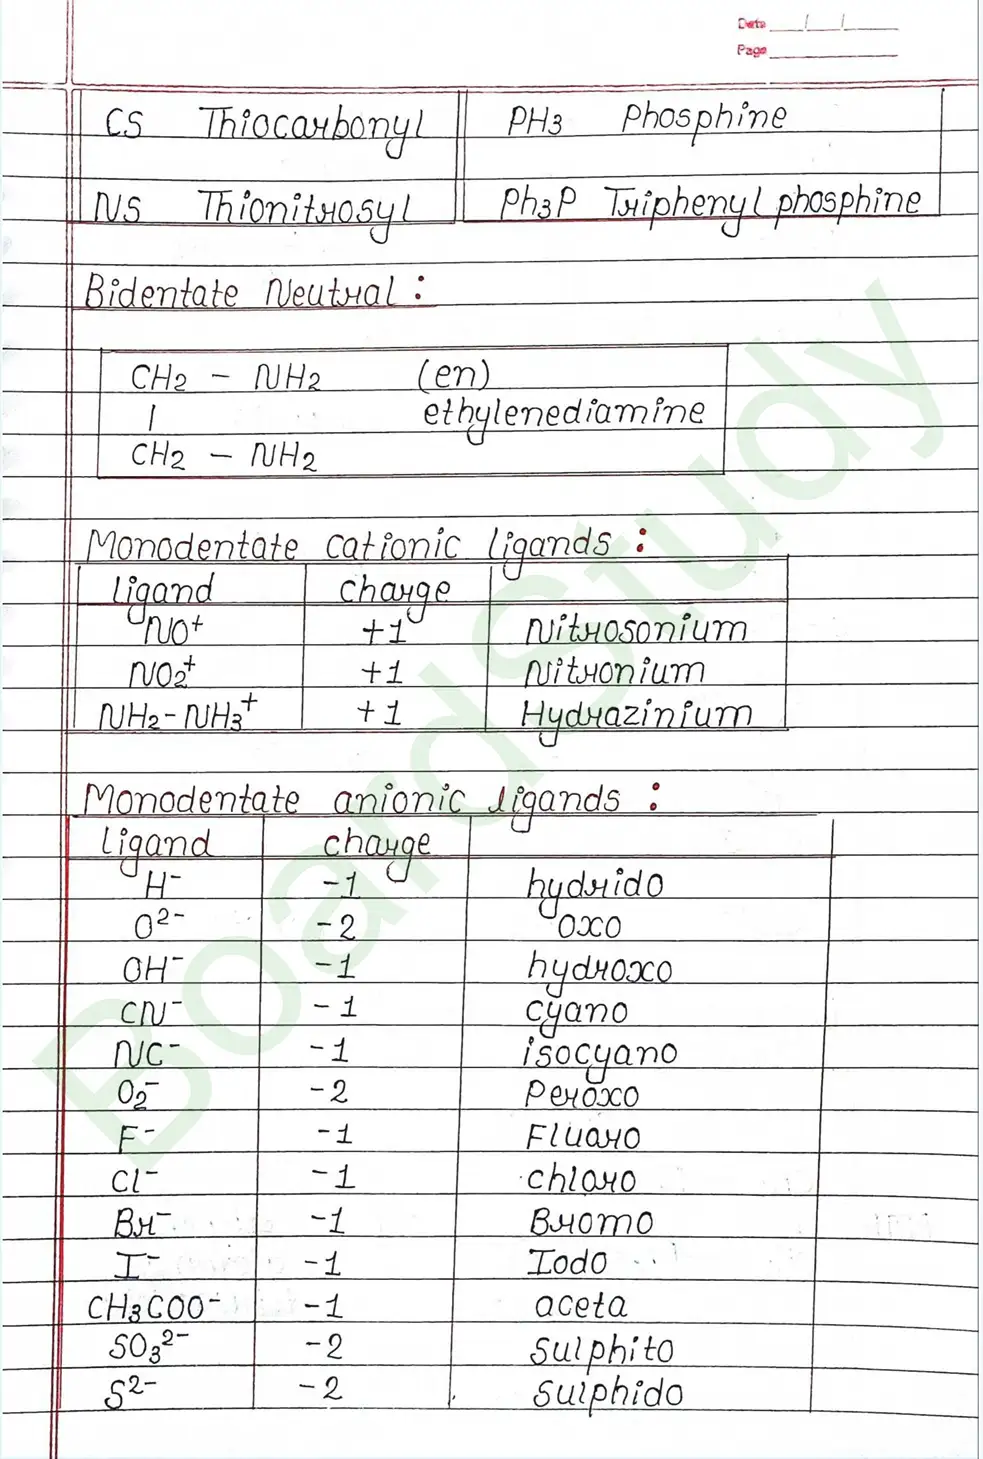 Date / /
Page
CS Thiocarbonyl PH3 Phosphine
NS Thionitrosyl Ph3P Triphenyl phosphine
Bidentate Neutral :
CH2 - NH2 (en)
| ethylenediamine
CH2 - NH2
Monodentate cationic ligands :
ligand charge
NO+ +1 Nitrosonium
NO2+ +1 Nitronium
NH2-NH3+ +1 Hydrazinium
Monodentate anionic ligands :
ligand charge
H- -1 hydrido
O2- -2 oxo
OH- -1 hydroxo
CN- -1 cyano
NC- -1 isocyano
O2- -2 Peroxo
F- -1 Fluoro
Cl- -1 chloro
Br- -1 Bromo
I- -1 Iodo
CH3COO- -1 aceta
SO32- -2 Sulphito
S2- -2 Sulphido
BoardStudy